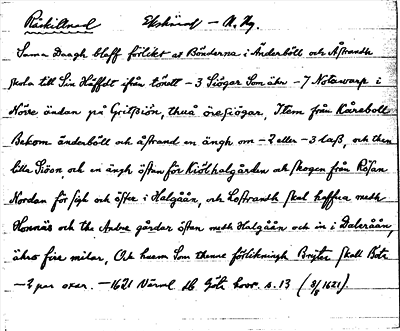 Räckillrud Ekshärad – N. Ny.
Samma Daagh bleff förlikt at Bönderna i Änderbÿll och Åstrandh
skola till Sin Häffdt ifrån lönett – 3 Siögar Som ähr – 7 Notawarp i
Nörre ändan på Gritsiön, thuå öresiögar, Item från Kåreboll
Bekom änderböll och åstrand en ängh om – 2 eller – 3 laß, och then
lille Siöön, och en ängh östan för Kiölhalgården och skogen från Råsan
Nordan för sigh och öfter i Halgåån, och Lostrandh skal haffua medh
Honnäs och the Andre gårdar östan medh Halgåån och in i Dalråån,
ähro fire milar, Och huem Som thenne förlikningh Bryter skall Böte
– 2 par oxar. – 1621 Värml db Göta hovr. s. 13 (3/8 1621).